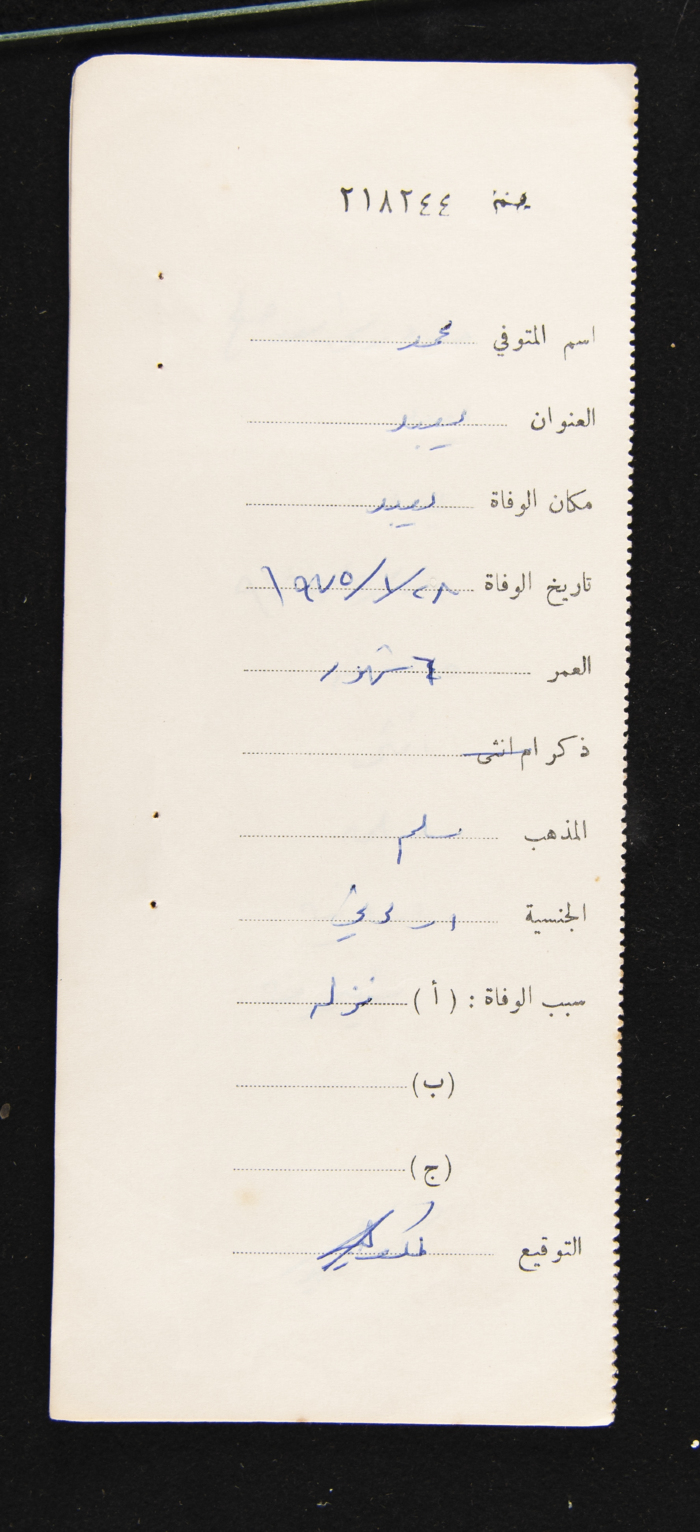 ٢١٨٢٤٤
اسم المتوفي محمد
العنوان يعبد
مكان الوفاة يعبد
تاريخ الوفاة ٢٨/٧/١٩٧٥
العمر ٦ شهور
ذكر ام انثى
المذهب مسلم
الجنسية اردني
سبب الوفاة : (أ) نزله
(ب)
(ج)
التوقيع